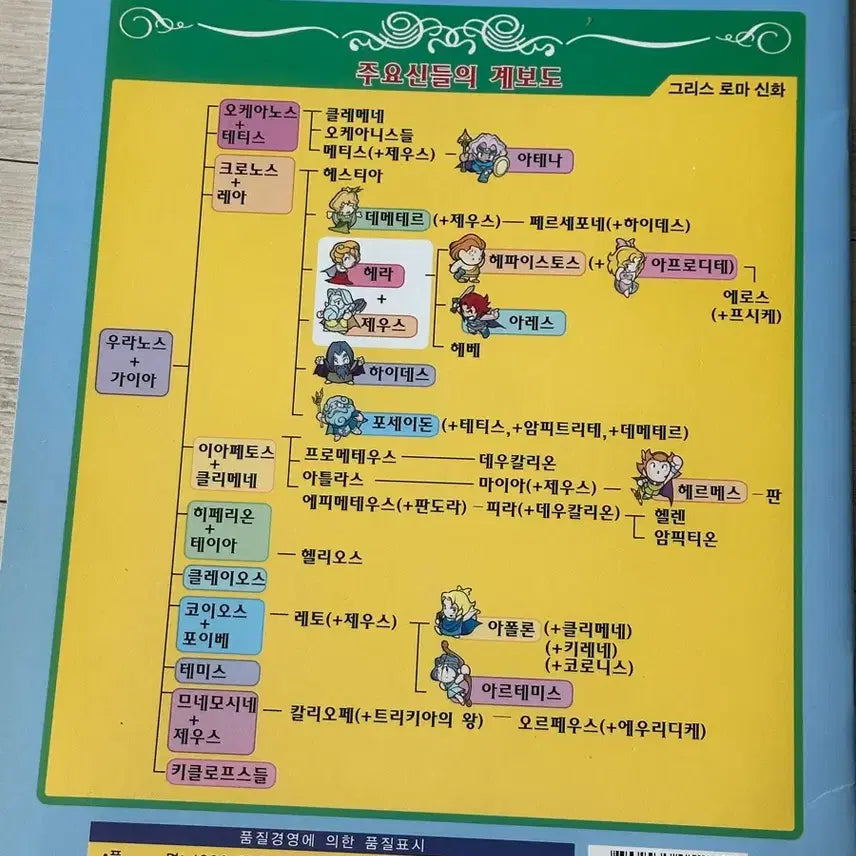 주요신들의 계보도
그리스 로마 신화
오케아노스
+
테티스
클레메네
오케아니스들
메티스(+제우스)
아테나
크로노스
+
레아
헤스티아
데메테르 (+제우스) 페르세포네(+하이데스)
헤라
+
제우스
헤파이스토스 (+ 아프로디테)
에로스
(+프시케)
아레스
헤베
하이데스
포세이돈 (+테티스,+암피트리테,+데메테르)
우라노스
+
가이아
이아페토스
+
클리메네
프로메테우스 데우칼리온
아틀라스 마이아(+제우스) 헤르메스 판
에피메테우스(+판도라) 피라(+데우칼리온) 헬렌
암픽티온
히페리온
+
테이아
헬리오스
클레이오스
코이오스
+
포이베
레토(+제우스)
아폴론 (+클리메네)
(+키레네)
(+코로니스)
아르테미스
테미스
므네모시네
+
제우스
칼리오페(+트리키아의 왕) 오르페우스(+에우리디케)
키클로프스들
품질경영에 의한 품질표시